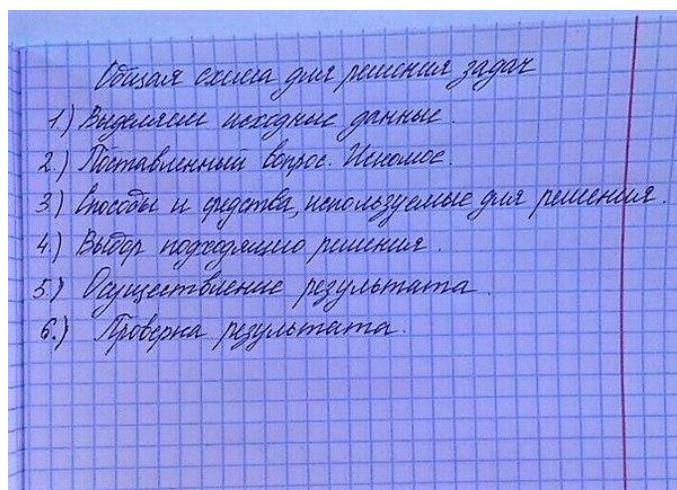 Общая схема для решения задач
1.) Выделяем исходные данные.
2.) Поставленный вопрос. Искомое.
3.) Способы и средства, используемые для решения.
4.) Выбор подходящего решения.
5.) Осуществление результата.
6.) Проверка результата.